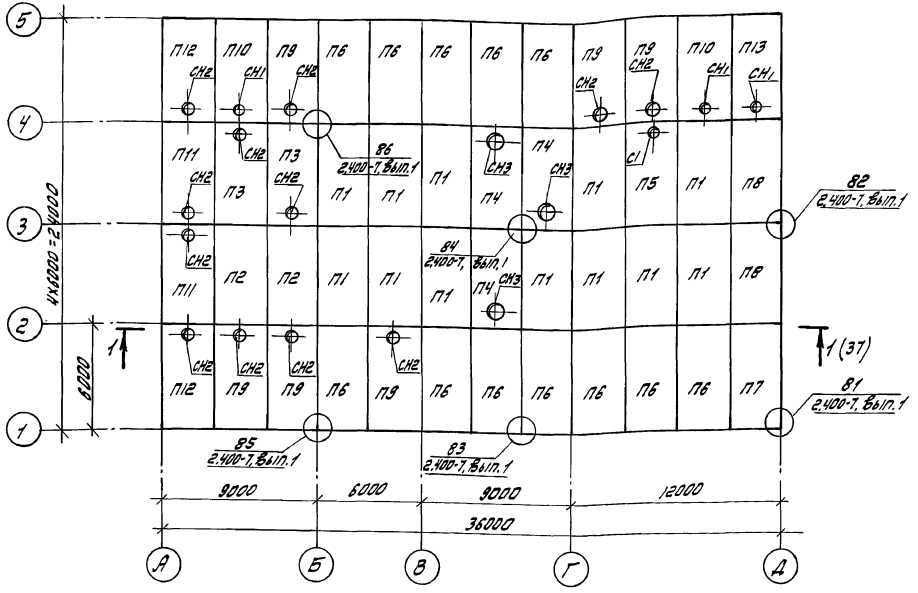 5
П12 П10 П9 П6 П6 П6 П6 П6 П9 П9 П10 П13
СН2 СН1 СН2 СН2 СН2 СН1 СН1
4
86
2.400-7, Вып.1
П11 П3 П3 П1 П1 П1 П4 П4 П1 П5 П1 П8
СН2 СН3 С1
СН2 СН2 СН3
82
2.400-7, Вып.1
3
84
2.400-7, Вып.1
СН2
П11 П2 П2 П1 П1 П1 П4 П1 П1 П1 П1 П8
СН3
2
1 1 (37)
СН2 СН2 СН2 СН2
П12 П9 П9 П6 П9 П6 П6 П6 П6 П6 П6 П7
81
2.400-7, Вып.1
1
85
2.400-7, Вып.1
83
2.400-7, Вып.1
4х6000=24000
6000
9000 6000 9000 12000
36000
А Б В Г Д